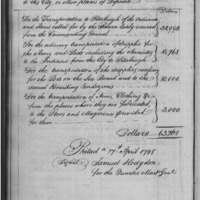 to the City, or other places of Deposit
Dollars
For the Transportation to Pittsburgh of the
and stores called for by the
from the Commanding General
For the ordinary transportation of supplies for
the Army and Posts including the Annuities
to the Indians from this City to Pittsburgh
For the transportation of the supplies wanting
for the Posts on the Sea Board and to the
several Recruiting Rendezvous
10,000
For the transportation of Arms, Clothing &c
from the places where they are fabricated
to the Stores and Magazines provided
for them
3,000
Dollars
Philad a 17th April 1798
Signed
Samuel Hodgdon
for the Quarter Mast Genl